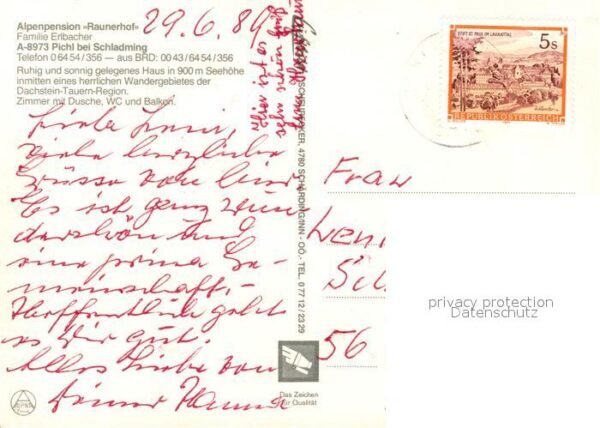 Alpenpension »Raunerhof«
Familie Erlbacher
A-8973 Pichl bei Schladming
Telefon 0 64 54 / 356 — aus BRD: 00 43 / 64 54 / 356
Ruhig und sonnig gelegenes Haus in 900 m Seehöhe
inmitten eines herrlichen Wandergebietes der
Dachstein-Tauern-Region.
Zimmer mit Dusche, WC und Balkon.
29.6.89
Liebe Leni,
viele herzliche
Grüsse von hier
Es ist ganz wun
derschön und
eine prima Ge-
meinschaft.
Hoffentlich geht
es Dir gut.
Alles Liebe von
Deiner Hanna
4780 SCHÄRDING/INN - OÖ. - TEL. 0 77 12 / 23 29
Das Zeichen
für Qualität
STIFT ST. PAUL IM LAVANTTAL
5 S
REPUBLIK ÖSTERREICH
Frau
Leni
56
privacy protection
Datenschutz